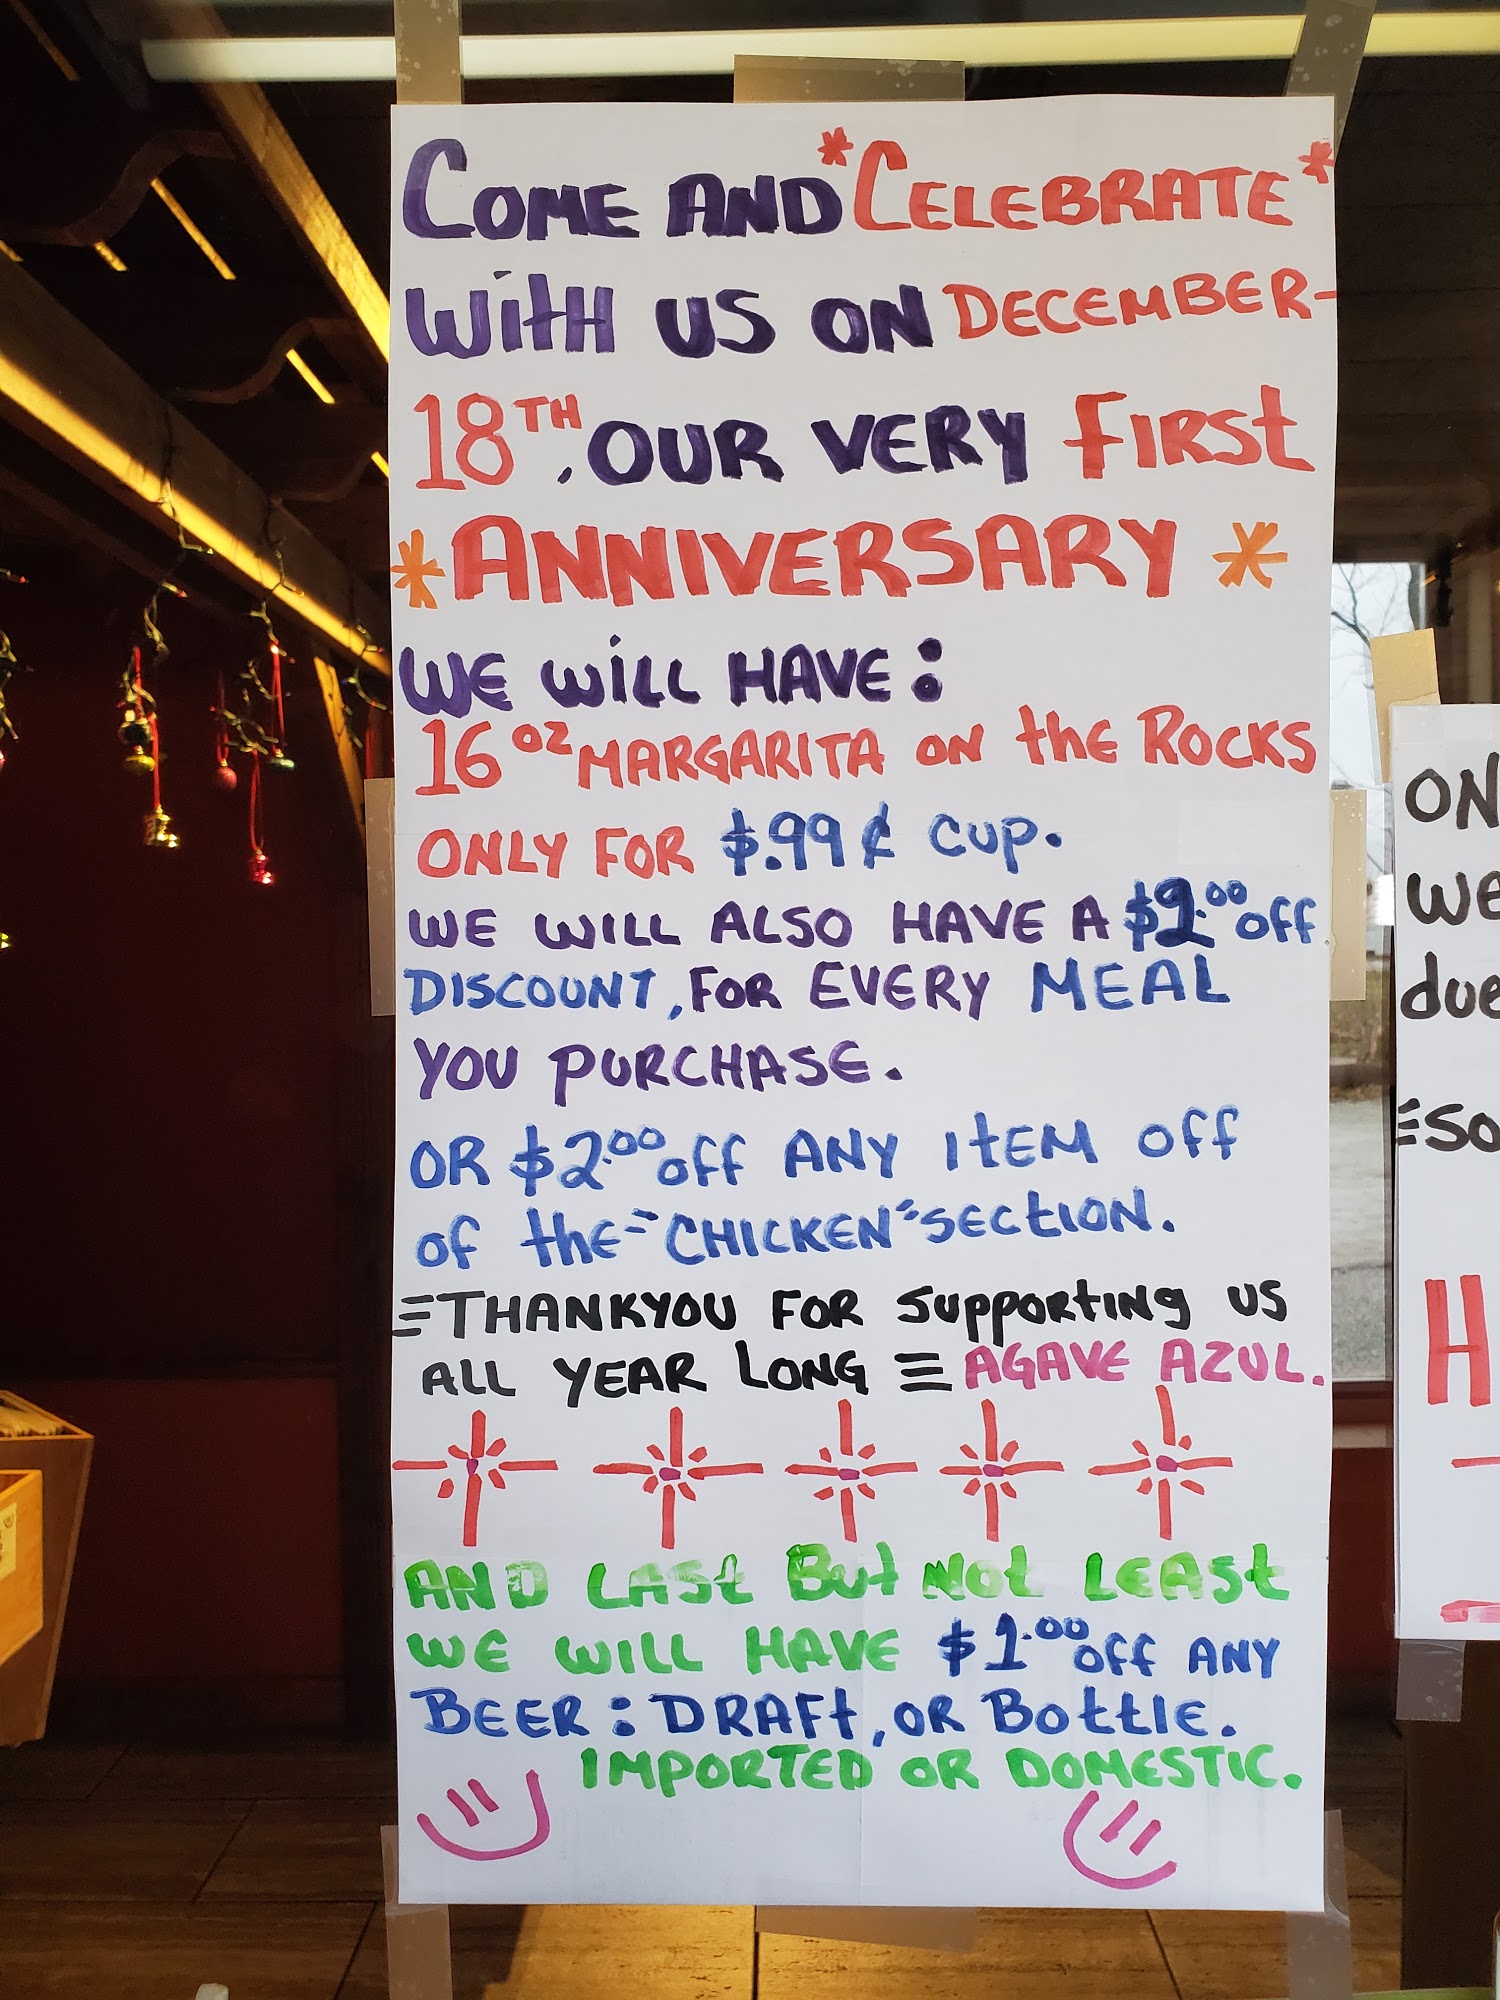 COME AND *CELEBRATE*
WITH US ON DECEMBER-
18TH, OUR VERY FIRST
*ANNIVERSARY*
WE WILL HAVE:
16 OZ MARGARITA ON the ROCKS
ONLY FOR $.99¢ CUP.
WE WILL ALSO HAVE A $2.00 Off
DISCOUNT, FOR EVERY MEAL
YOU PURCHASE.
OR $2.00 Off ANY ITEM Off
of the "CHICKEN" SECTION.
=THANKYOU FOR Supporting US
ALL YEAR LONG = AGAVE AZUL.
AND LAST But Not LEAST
WE WILL HAVE $1.00 Off ANY
BEER: DRAFT, OR Bottle.
IMPORTED OR DOMESTIC.
ON
we
due
=SO
H